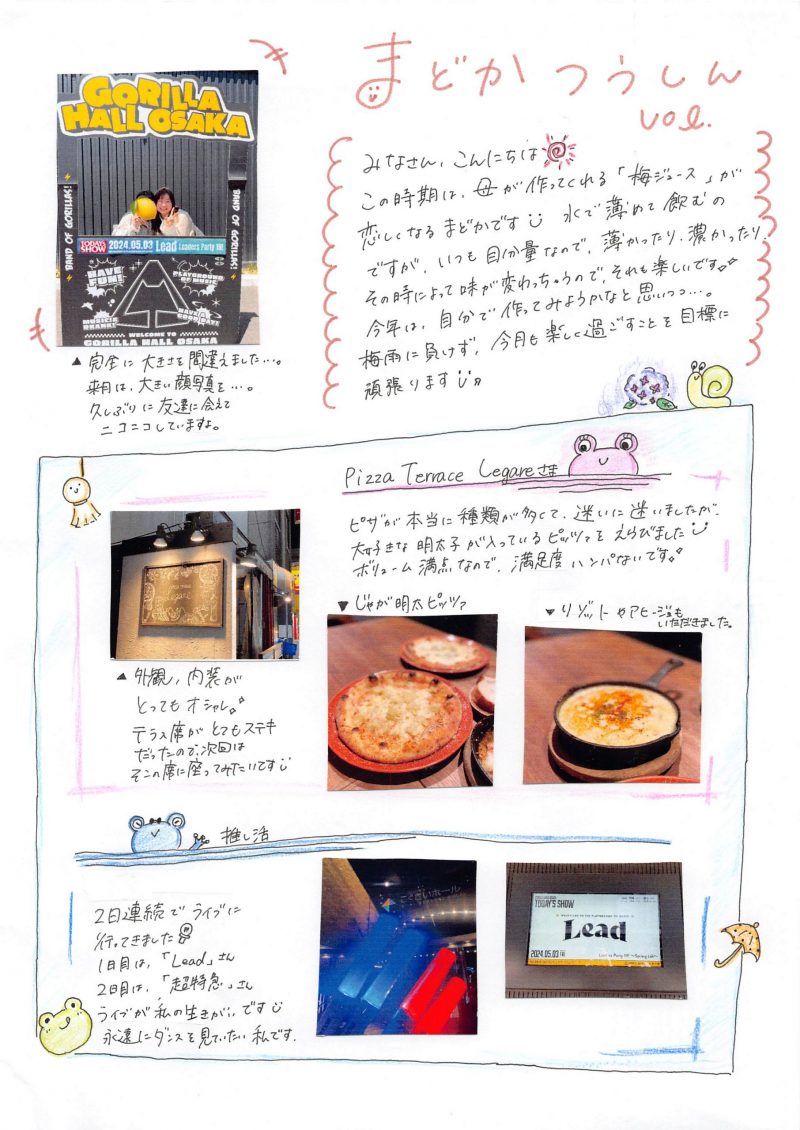 まどかつうしん
vol.
GORILLA
HALL OSAKA
BAND OF GORILLAS!
BAND OF GORILLAS!
TODAY'S
SHOW
2024.05.03 Lead Leaders Party
HAVE
FUN!
PLAYGROUND
OF MUSIC
MUSIC IS
BANANA!
WELCOME TO
GORILLA HALL OSAKA
みなさん、こんにちは
この時期は、母が作ってくれる「梅ジュース」が
恋しくなるまどかです 水で薄めて飲むの
ですが、いつも目分量なので、薄かったり、濃かったり、
その時によって味が変わっちゃうので、それも楽しいです。
今年は、自分で作ってみようかなと思いつつ…。
梅雨に負けず、今月も楽しく過ごすことを目標に
頑張ります
▲完全に大きさを間違えました…。
来月は、大きい顔写真を…。
久しぶりに友達に会えて
ニコニコしていますよ。
Pizza Terrace Legareさま
ピザが本当に種類が多くて、迷いに迷いましたが、
大好きな明太子が入っているピッツァをえらびました
ボリューム満点なので、満足度ハンパないです。
▼じゃが明太ピッツァ
▼リゾットやアヒージョも
いただきました。
Legare
▲外観、内装が
とってもオシャレ。
テラス席がとてもステキ
だったので、次回は
そこの席に座ってみたいです
推し活
2日連続でライブに
行ってきました
1日目は、「Lead」さん
2日目は、「超特急」さん
ライブが私の生きがいです
永遠にダンスを見ていたい私です。
こくさいホール
TODAY'S SHOW
Lead
2024.05.03